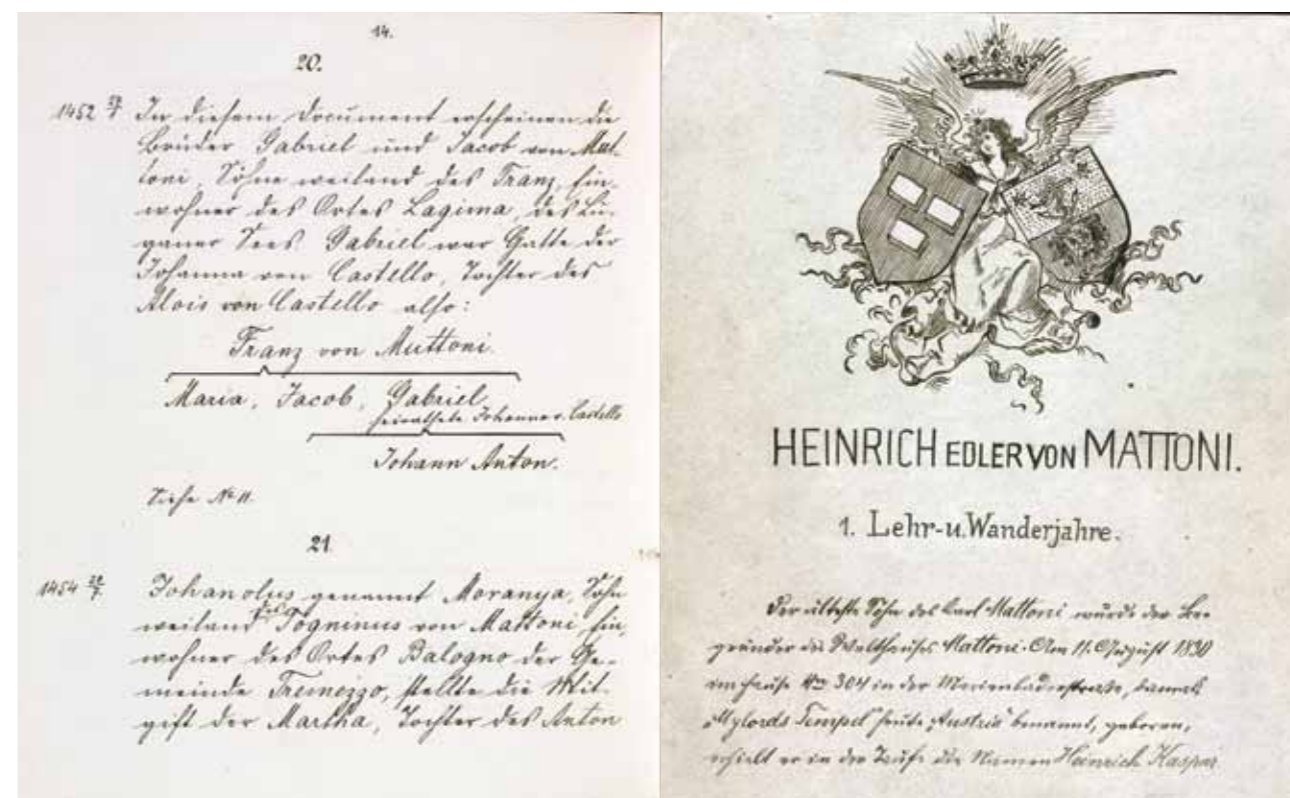 14.
20.
1452 In diesem Document erscheinen die
Brüder Gabriel und Jacob von Mut-
toni, Söhne weiland des Franz, Ein-
wohner des Ortes Lagima, des Lu-
ganer Sees. Gabriel war Gatte der
Johanna von Castello, Tochter des
Alois von Castello also:
Franz von Muttoni.
Maria, Jacob, Gabriel
heirathete Johanna v. Castello
Johann Anton.
Siehe No 11.
21.
1454 Johanolus genannt Moranya, Sohn
weiland des Togninus von Mattoni, Ein-
wohner des Ortes Balogno der Ge-
meinde Tremezzo, stellte die Mit-
gift der Martha, Tochter des Anton
HEINRICH EDLER VON MATTONI.
1. Lehr-u. Wanderjahre.
Der älteste Sohn des Karl Mattoni wurde der Be-
gründer des Welthauses Mattoni. Am 11. August 1830
im Hause No 304 in der Marienbaderstrasse, damals
„Mylords Tempel" heute „Austria" benannt, geboren,
erhielt er in der Taufe die Namen Heinrich Kaspar.